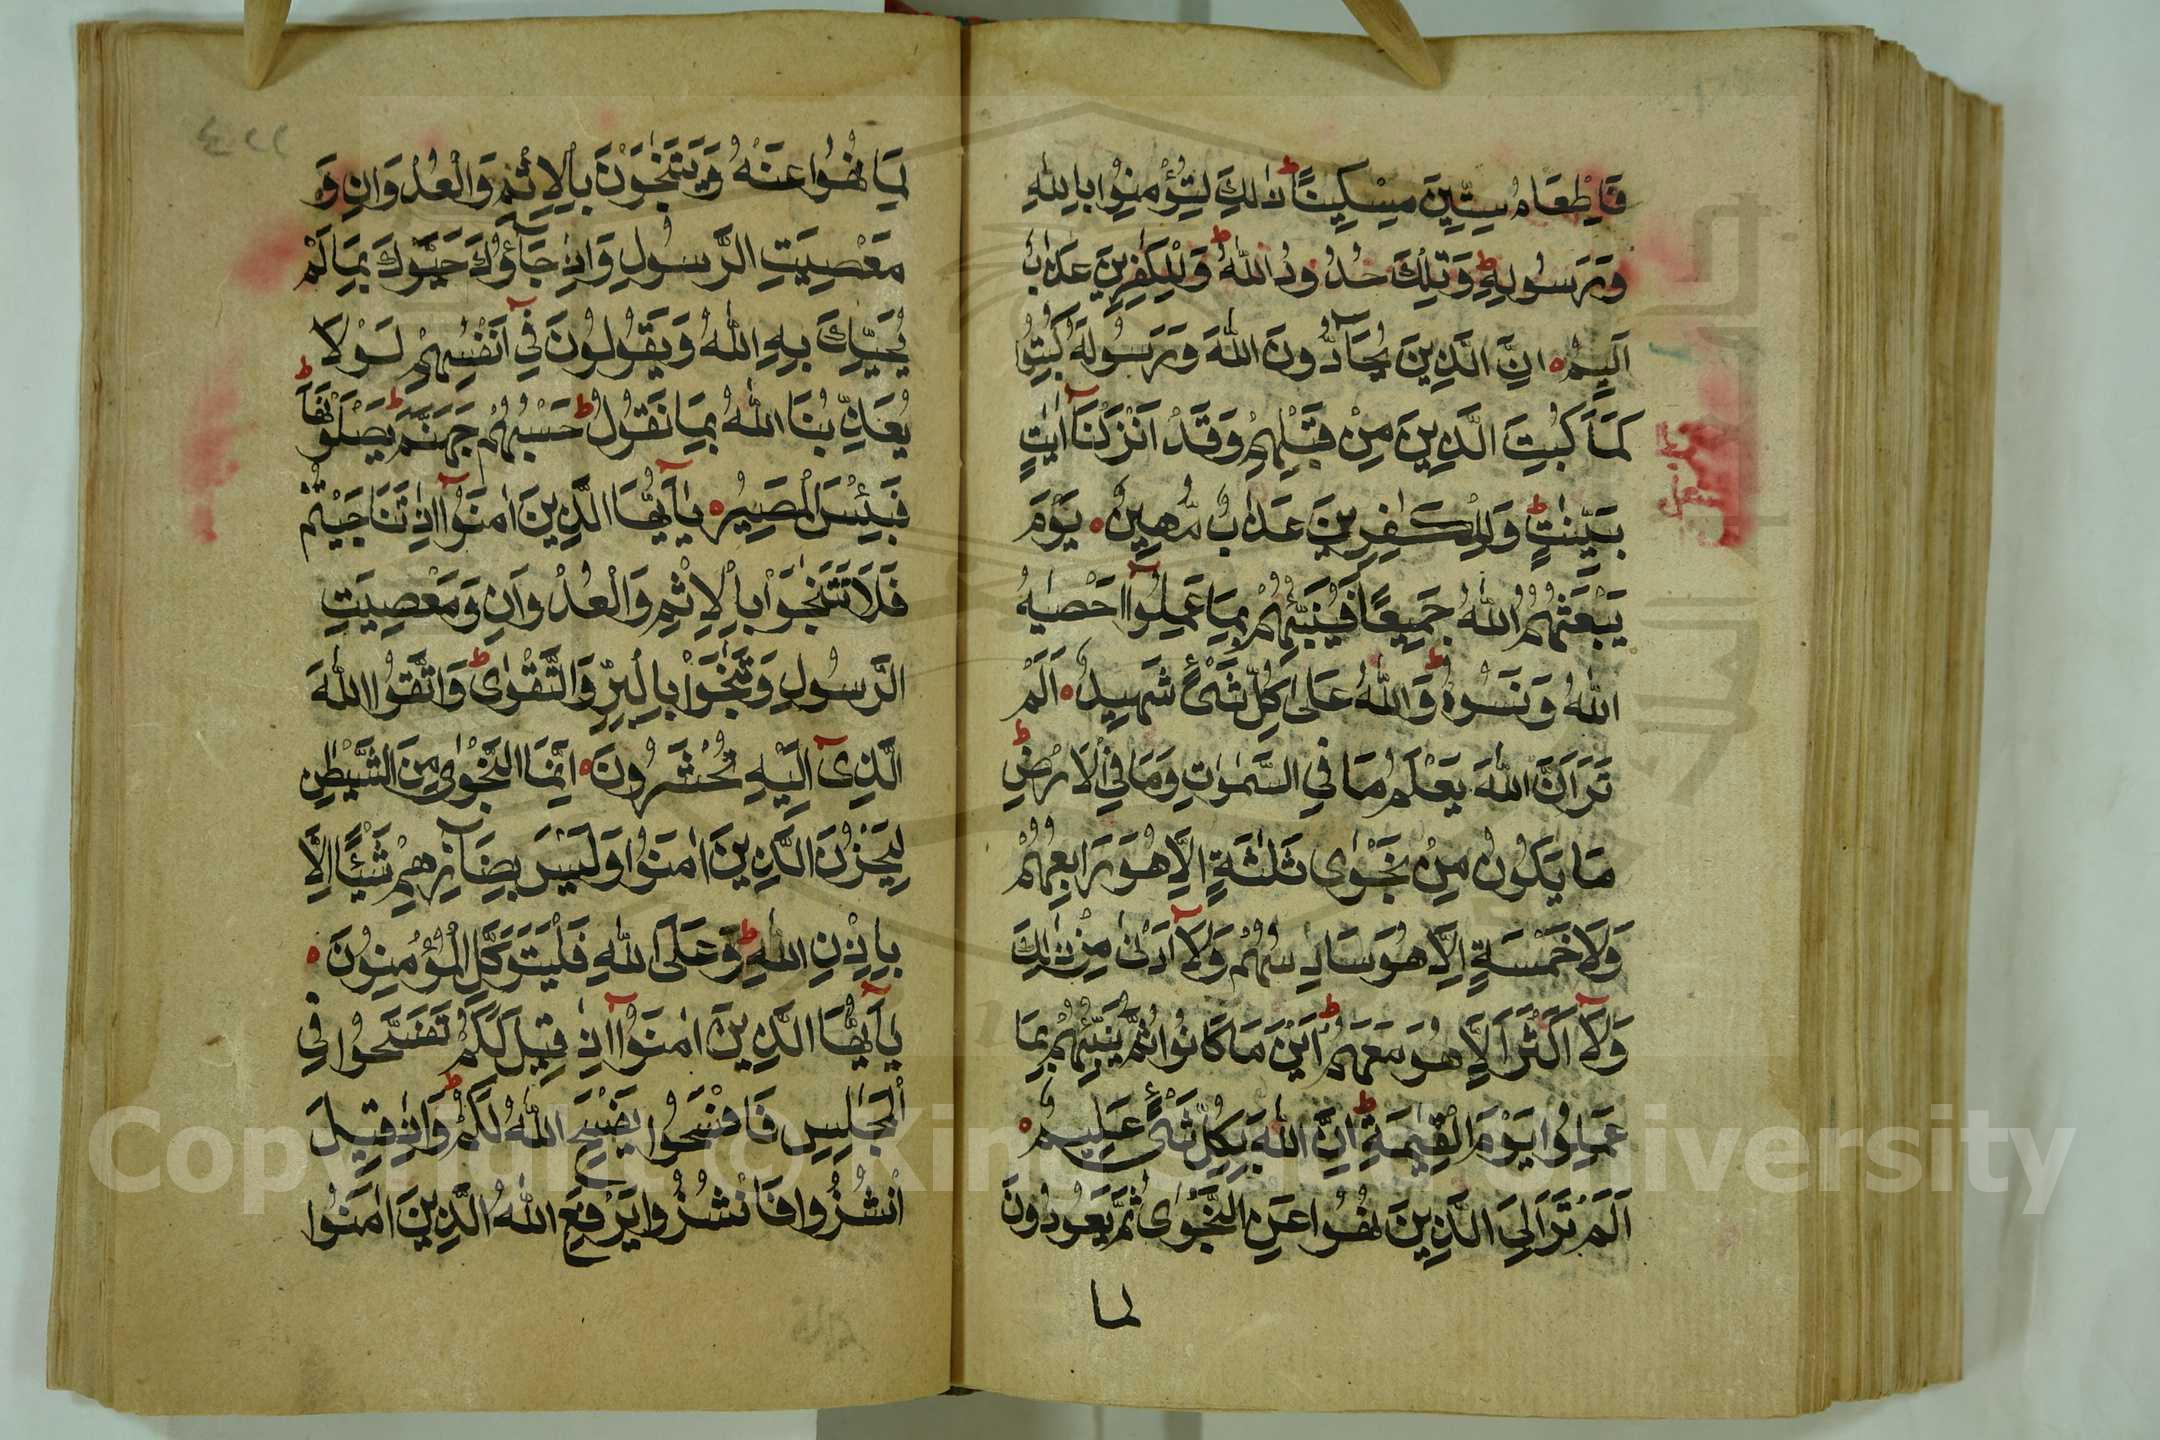 فَاِطْعَامُ سِتِّيْنَ مِسْكِيْنًا ط ذٰلِكَ لِتُؤْمِنُوْا بِاللّٰهِ
وَرَسُوْلِهٖ ط وَتِلْكَ حُدُوْدُ اللّٰهِ ط وَلِلْكٰفِرِيْنَ عَذَابٌ
اَلِيْمٌ ه اِنَّ الَّذِيْنَ يُحَآدُّوْنَ اللّٰهَ وَرَسُوْلَهٗ كُبِتُوْا
كَمَا كُبِتَ الَّذِيْنَ مِنْ قَبْلِهِمْ وَقَدْ اَنْزَلْنَآ اٰيٰتٍ
بَيِّنٰتٍ ط وَلِلْكٰفِرِيْنَ عَذَابٌ مُّهِيْنٌ ه يَوْمَ
يَبْعَثُهُمُ اللّٰهُ جَمِيْعًا فَيُنَبِّئُهُمْ بِمَا عَمِلُوْٓا اَحْصٰىهُ
اللّٰهُ وَنَسُوْهُ ط وَاللّٰهُ عَلٰى كُلِّ شَىْءٍ شَهِيْدٌ ه اَلَمْ
تَرَ اَنَّ اللّٰهَ يَعْلَمُ مَا فِى السَّمٰوٰتِ وَمَا فِى الْاَرْضِ ط
مَا يَكُوْنُ مِنْ نَّجْوٰى ثَلٰثَةٍ اِلَّا هُوَ رَابِعُهُمْ
وَلَا خَمْسَةٍ اِلَّا هُوَ سَادِسُهُمْ وَلَآ اَدْنٰى مِنْ ذٰلِكَ
وَلَآ اَكْثَرَ اِلَّا هُوَ مَعَهُمْ ط اَيْنَ مَا كَانُوْا ثُمَّ يُنَبِّئُهُمْ بِمَا
عَمِلُوْا يَوْمَ الْقِيٰمَةِ ط اِنَّ اللّٰهَ بِكُلِّ شَىْءٍ عَلِيْمٌ ه
اَلَمْ تَرَ اِلَى الَّذِيْنَ نُهُوْا عَنِ النَّجْوٰى ثُمَّ يَعُوْدُوْنَ
لما
لِمَا نُهُوْا عَنْهُ وَيَتَنٰجَوْنَ بِالْاِثْمِ وَالْعُدْوَانِ وَ
مَعْصِيَتِ الرَّسُوْلِ وَاِذَا جَآؤُكَ حَيَّوْكَ بِمَا لَمْ
يُحَيِّكَ بِهِ اللّٰهُ وَيَقُوْلُوْنَ فِىْٓ اَنْفُسِهِمْ لَوْلَا
يُعَذِّبُنَا اللّٰهُ بِمَا نَقُوْلُ ط حَسْبُهُمْ جَهَنَّمُ ط يَصْلَوْنَهَا ط
فَبِئْسَ الْمَصِيْرُ ه يٰٓاَيُّهَا الَّذِيْنَ اٰمَنُوْٓا اِذَا تَنَاجَيْتُمْ
فَلَا تَتَنٰجَوْا بِالْاِثْمِ وَالْعُدْوَانِ وَمَعْصِيَتِ
الرَّسُوْلِ وَتَنٰجَوْا بِالْبِرِّ وَالتَّقْوٰى ط وَاتَّقُوا اللّٰهَ
الَّذِىْٓ اِلَيْهِ تُحْشَرُوْنَ ه اِنَّمَا النَّجْوٰى مِنَ الشَّيْطٰنِ
لِيَحْزُنَ الَّذِيْنَ اٰمَنُوْا وَلَيْسَ بِضَآرِّهِمْ شَيْئًا اِلَّا
بِاِذْنِ اللّٰهِ ط وَعَلَى اللّٰهِ فَلْيَتَوَكَّلِ الْمُؤْمِنُوْنَ ه
يٰٓاَيُّهَا الَّذِيْنَ اٰمَنُوْٓا اِذَا قِيْلَ لَكُمْ تَفَسَّحُوْا فِى
الْمَجٰلِسِ فَافْسَحُوْا يَفْسَحِ اللّٰهُ لَكُمْ ط وَاِذَا قِيْلَ
انْشُزُوْا فَانْشُزُوْا يَرْفَعِ اللّٰهُ الَّذِيْنَ اٰمَنُوْا